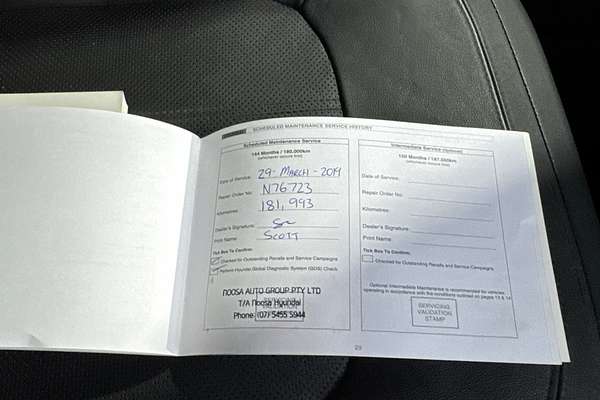 SCHEDULED MAINTENANCE SERVICE HISTORY
Scheduled Maintenance Service
144 Months / 180,000km
(whichever occurs first)
Date of Service: 29-MARCH-2019
Repair Order No: N76723
Kilometres: 181,993
Dealer's Signature:
Print Name SCOTT
Tick Box To Confirm:
Checked for Outstanding Recalls and Service Campaigns
Perform Hyundai Global Diagnostic System (GDS) Check
NOOSA AUTO GROUP PTY LTD
T/A Noosa Hyundai
Phone: (07) 5455 5944
SERVICING
VALIDATION
STAMP
Intermediate Service (optional)
150 Months / 187,500km
(whichever occurs first)
Date of Service:
Repair Order No:
Kilometres:
Dealer's Signature:
Print Name
Tick Box To Confirm:
Checked for Outstanding Recalls and Service Campaigns
Optional Intermediate Maintenance is recommended for vehicles
operating in accordance with the conditions outlined on pages 13 & 14
SERVICING
VALIDATION
STAMP